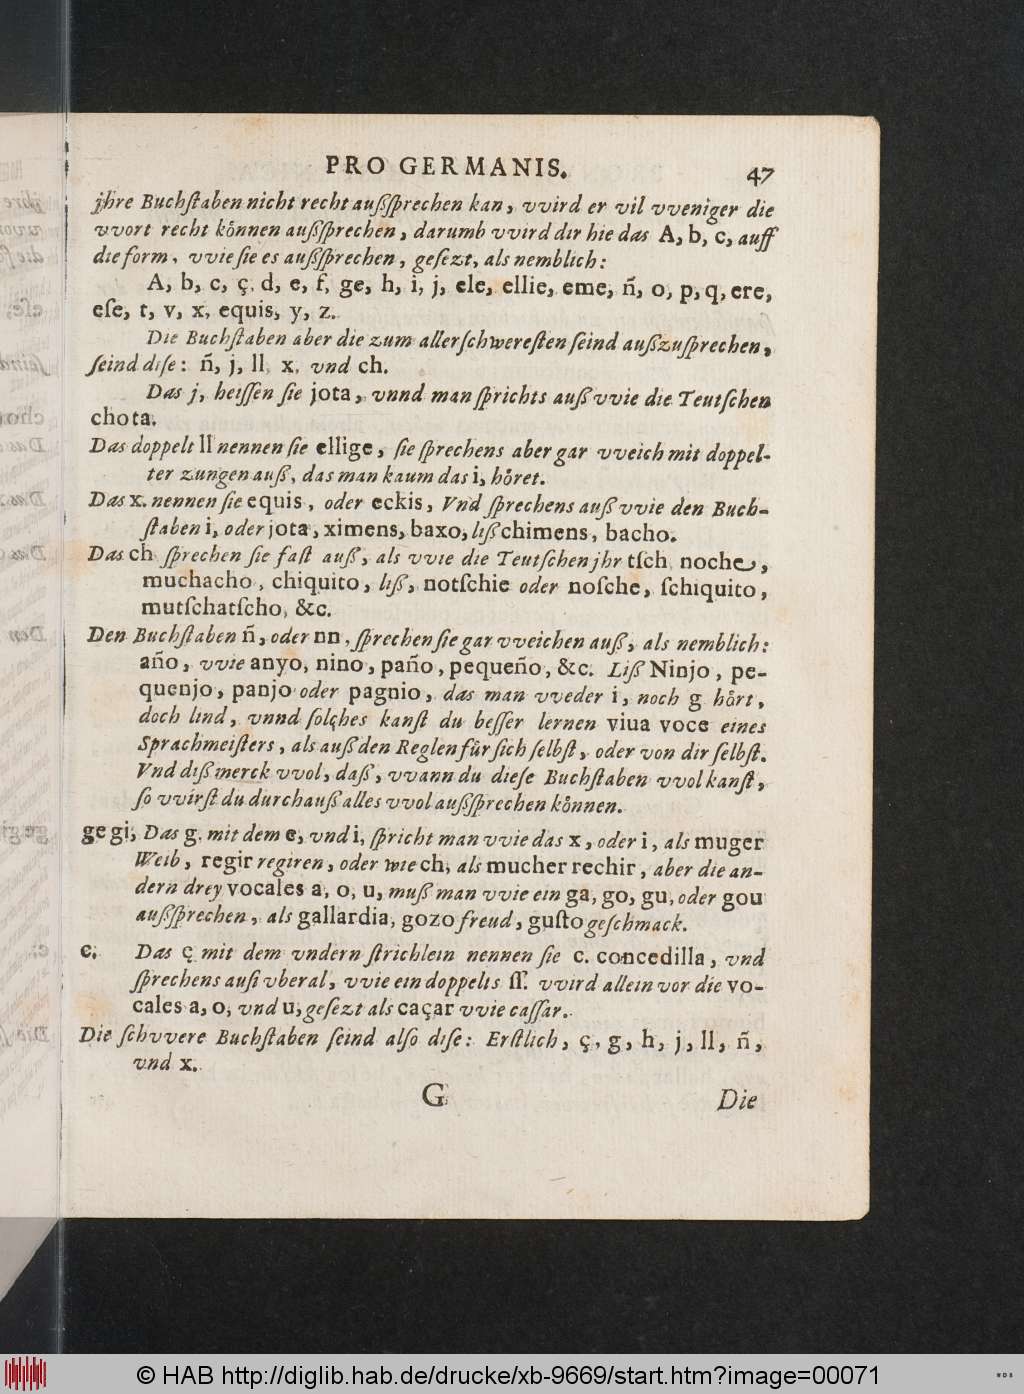 PRO GERMANIS. 47
jhre Buchſtaben nicht recht außſprechen kan, vvird er vil vveniger die
vvort recht koͤnnen außſprechen, darumb vvird dir hie das A, b, c, auff
die form, vvie ſie es außſprechen, geſezt, als nemblich:
A, b, c, ç, d, e, f, ge, h, i, j, ele, ellie, eme, ñ, o, p, q, ere,
eſe, t, v, x, equis, y, z.
Die Buchſtaben aber die zum allerſchwereſten ſeind außzuſprechen,
ſeind diſe: ñ, j, ll, x, vnd ch.
Das j, heiſſen ſie jota, vnnd man ſprichts auß vvie die Teutſchen
chota.
Das doppelt ll nennen ſie ellige, ſie ſprechens aber gar vveich mit doppel-
ter zungen auß, das man kaum das i, hoͤret.
Das x. nennen ſie equis, oder eckis, Vnd ſprechens auß vvie den Buch-
ſtaben i, oder jota, ximens, baxo, liß chimens, bacho.
Das ch ſprechen ſie faſt auß, als vvie die Teutſchen jhr tſch, noche,
muchacho, chiquito, liß, notſchie oder noſche, ſchiquito,
mutſchatſcho, &c.
Den Buchſtaben ñ, oder nn, ſprechen ſie gar vveichen auß, als nemblich:
año, vvie anyo, nino, paño, pequeño, &c. Liß Ninjo, pe-
quenjo, panjo oder pagnio, das man vveder i, noch g hoͤrt,
doch lind, vnnd ſolches kanſt du beſſer lernen viua voce eines
Sprachmeiſters, als auß den Reglen fuͤr ſich ſelbſt, oder von dir ſelbſt.
Vnd diß merck vvol, daß, vvann du dieſe Buchſtaben vvol kanſt,
ſo vvirſt du durchauß alles vvol außſprechen koͤnnen.
ge gi, Das g. mit dem e, vnd i, ſpricht man vvie das x, oder i, als muger
Weib, regir regiren, oder wie ch, als mucher rechir, aber die an-
dern drey vocales a, o, u, muß man vvie ein ga, go, gu, oder gou
außſprechen, als gallardia, gozo freud, guſto geſchmack.
c. Das ç mit dem vndern ſtrichlein nennen ſie c. concedilla, vnd
ſprechens auß vberal, vvie ein doppelts ſſ. vvird allein vor die vo-
cales a, o, vnd u, geſezt als caçar vvie caſſar.
Die ſchvvere Buchſtaben ſeind alſo diſe: Erſtlich, ç, g, h, j, ll, ñ,
vnd x.
G Die
© HAB http://diglib.hab.de/drucke/xb-9669/start.htm?image=00071